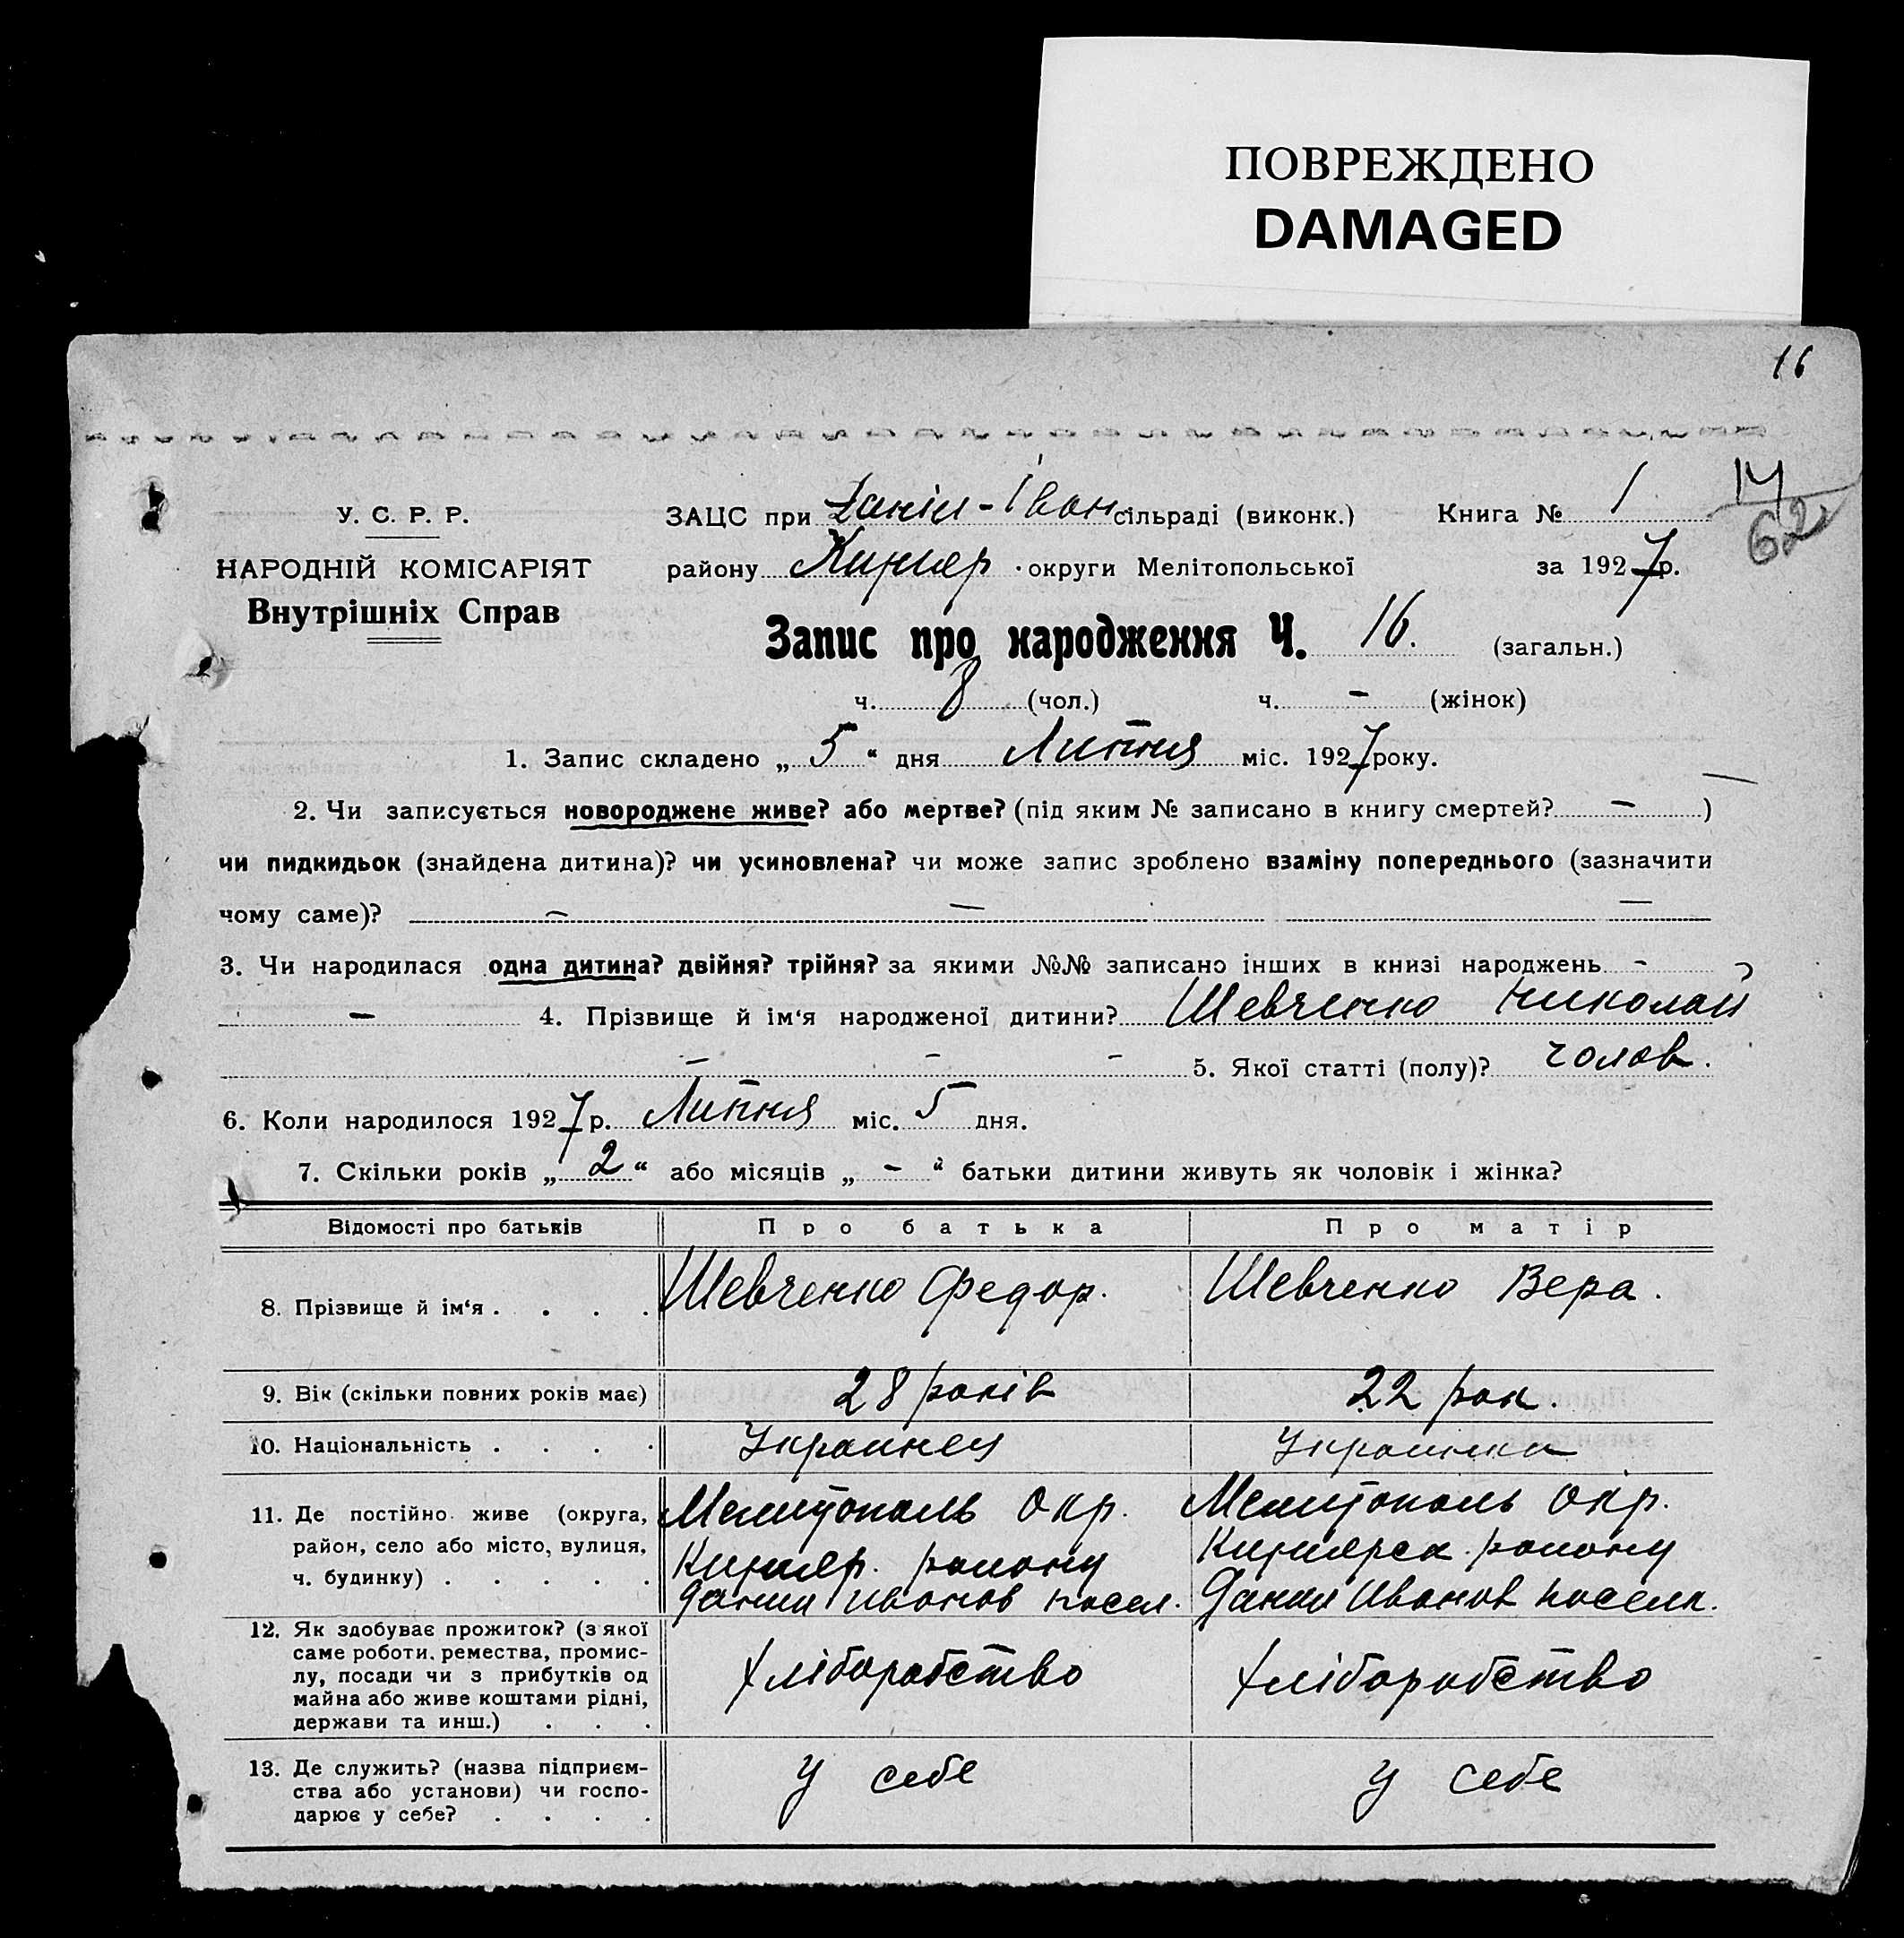 ПОВРЕЖДЕНО
DAMAGED
16
У. С. Р. Р.
НАРОДНІЙ КОМІСАРІЯТ
Внутрішніх Справ
ЗАЦС при Даніл-Іван сільраді (виконк.)
Книга № 1
14/62
району Кирилер. округи Мелітопольської
за 1927 р.
Запис про народження Ч. 16. (загальн.)
ч. 8 (чол.) ч. – (жінок)
1. Запис складено „ 5 “ дня Липня міс. 1927 року.
2. Чи записується новороджене живе? або мертве? (під яким № записано в книгу смертей? – )
чи пидкидьок (знайдена дитина)? чи усиновлена? чи може запис зроблено взаміну попереднього (зазначити
чому саме)? – – –
3. Чи народилася одна дитина? двійня? трійня? за якими №№ записано інших в книзі народжень - ?
– 4. Прізвище й ім‘я народженої дитини? Шевченко Николай
– – – 5. Якої статті (полу)? чолов.
6. Коли народилося 1927 р. Липня міс. 5 дня.
7. Скільки років „ 2 “ або місяців „ – “ батьки дитини живуть як чоловік і жінка?
Відомості про батьків
Про батька
Про матір
8. Прізвище й ім‘я . . . .
Шевченко Федор.
Шевченко Вера.
9. Вік (скільки повних років має)
28 років
22 рок.
10. Національність . . . .
Украинец
Украинка
11. Де постійно живе (округа,
район, село або місто, вулиця,
ч. будинку) . . . . .
Мелитополь Окр.
Кирилер. району
Данил Иванов посел.
Мелитополь Окр.
Кирилерск. району
Данил Иванов поселк.
12. Як здобуває прожиток? (з якої
саме роботи, ремества, промис-
лу, посади чи з прибутків од
майна або живе коштами рідні,
держави та инш.) . . .
хліборобство
хліборобство
13. Де служить? (назва підприєм-
ства або установи) чи госпо-
дарює у себе? . . . .
у себе
у себе